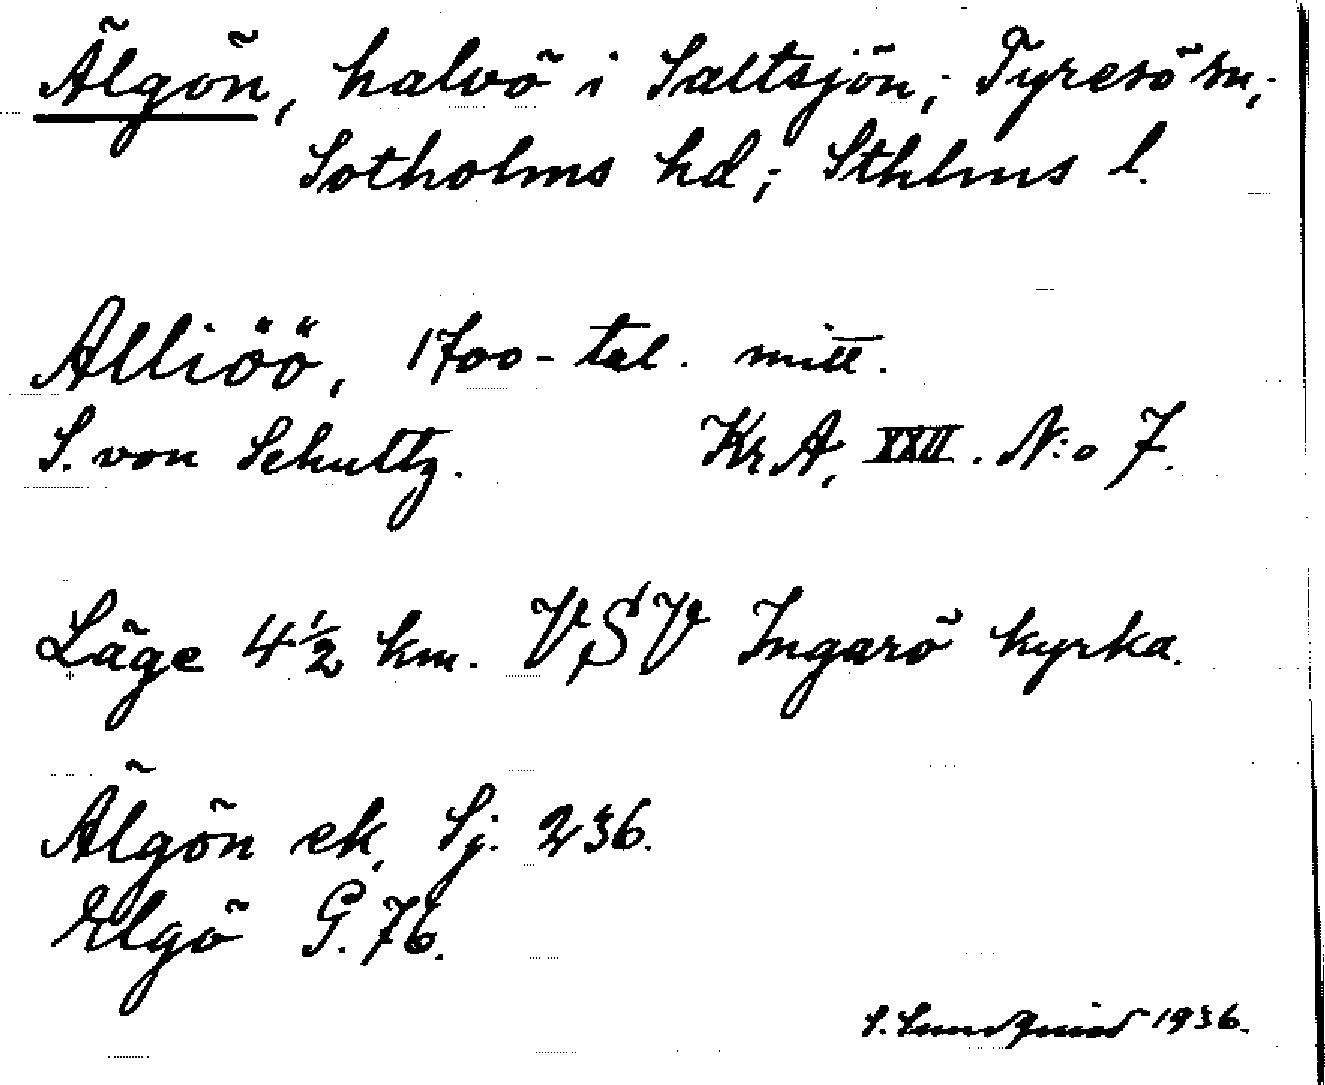 Älgön, halvö i Saltsjön; Tyresö sn;
Sotholms hd; Sthlms l.
Alliöö, 1700-tal. mitt.
S. von Schultz. Kr A, XXII. N:o 7.
Läge 4½ km. VSV Ingarö kyrka.
Älgön ek. Sj. 236.
Elgö G. 76.
S. Lundquist 1936.